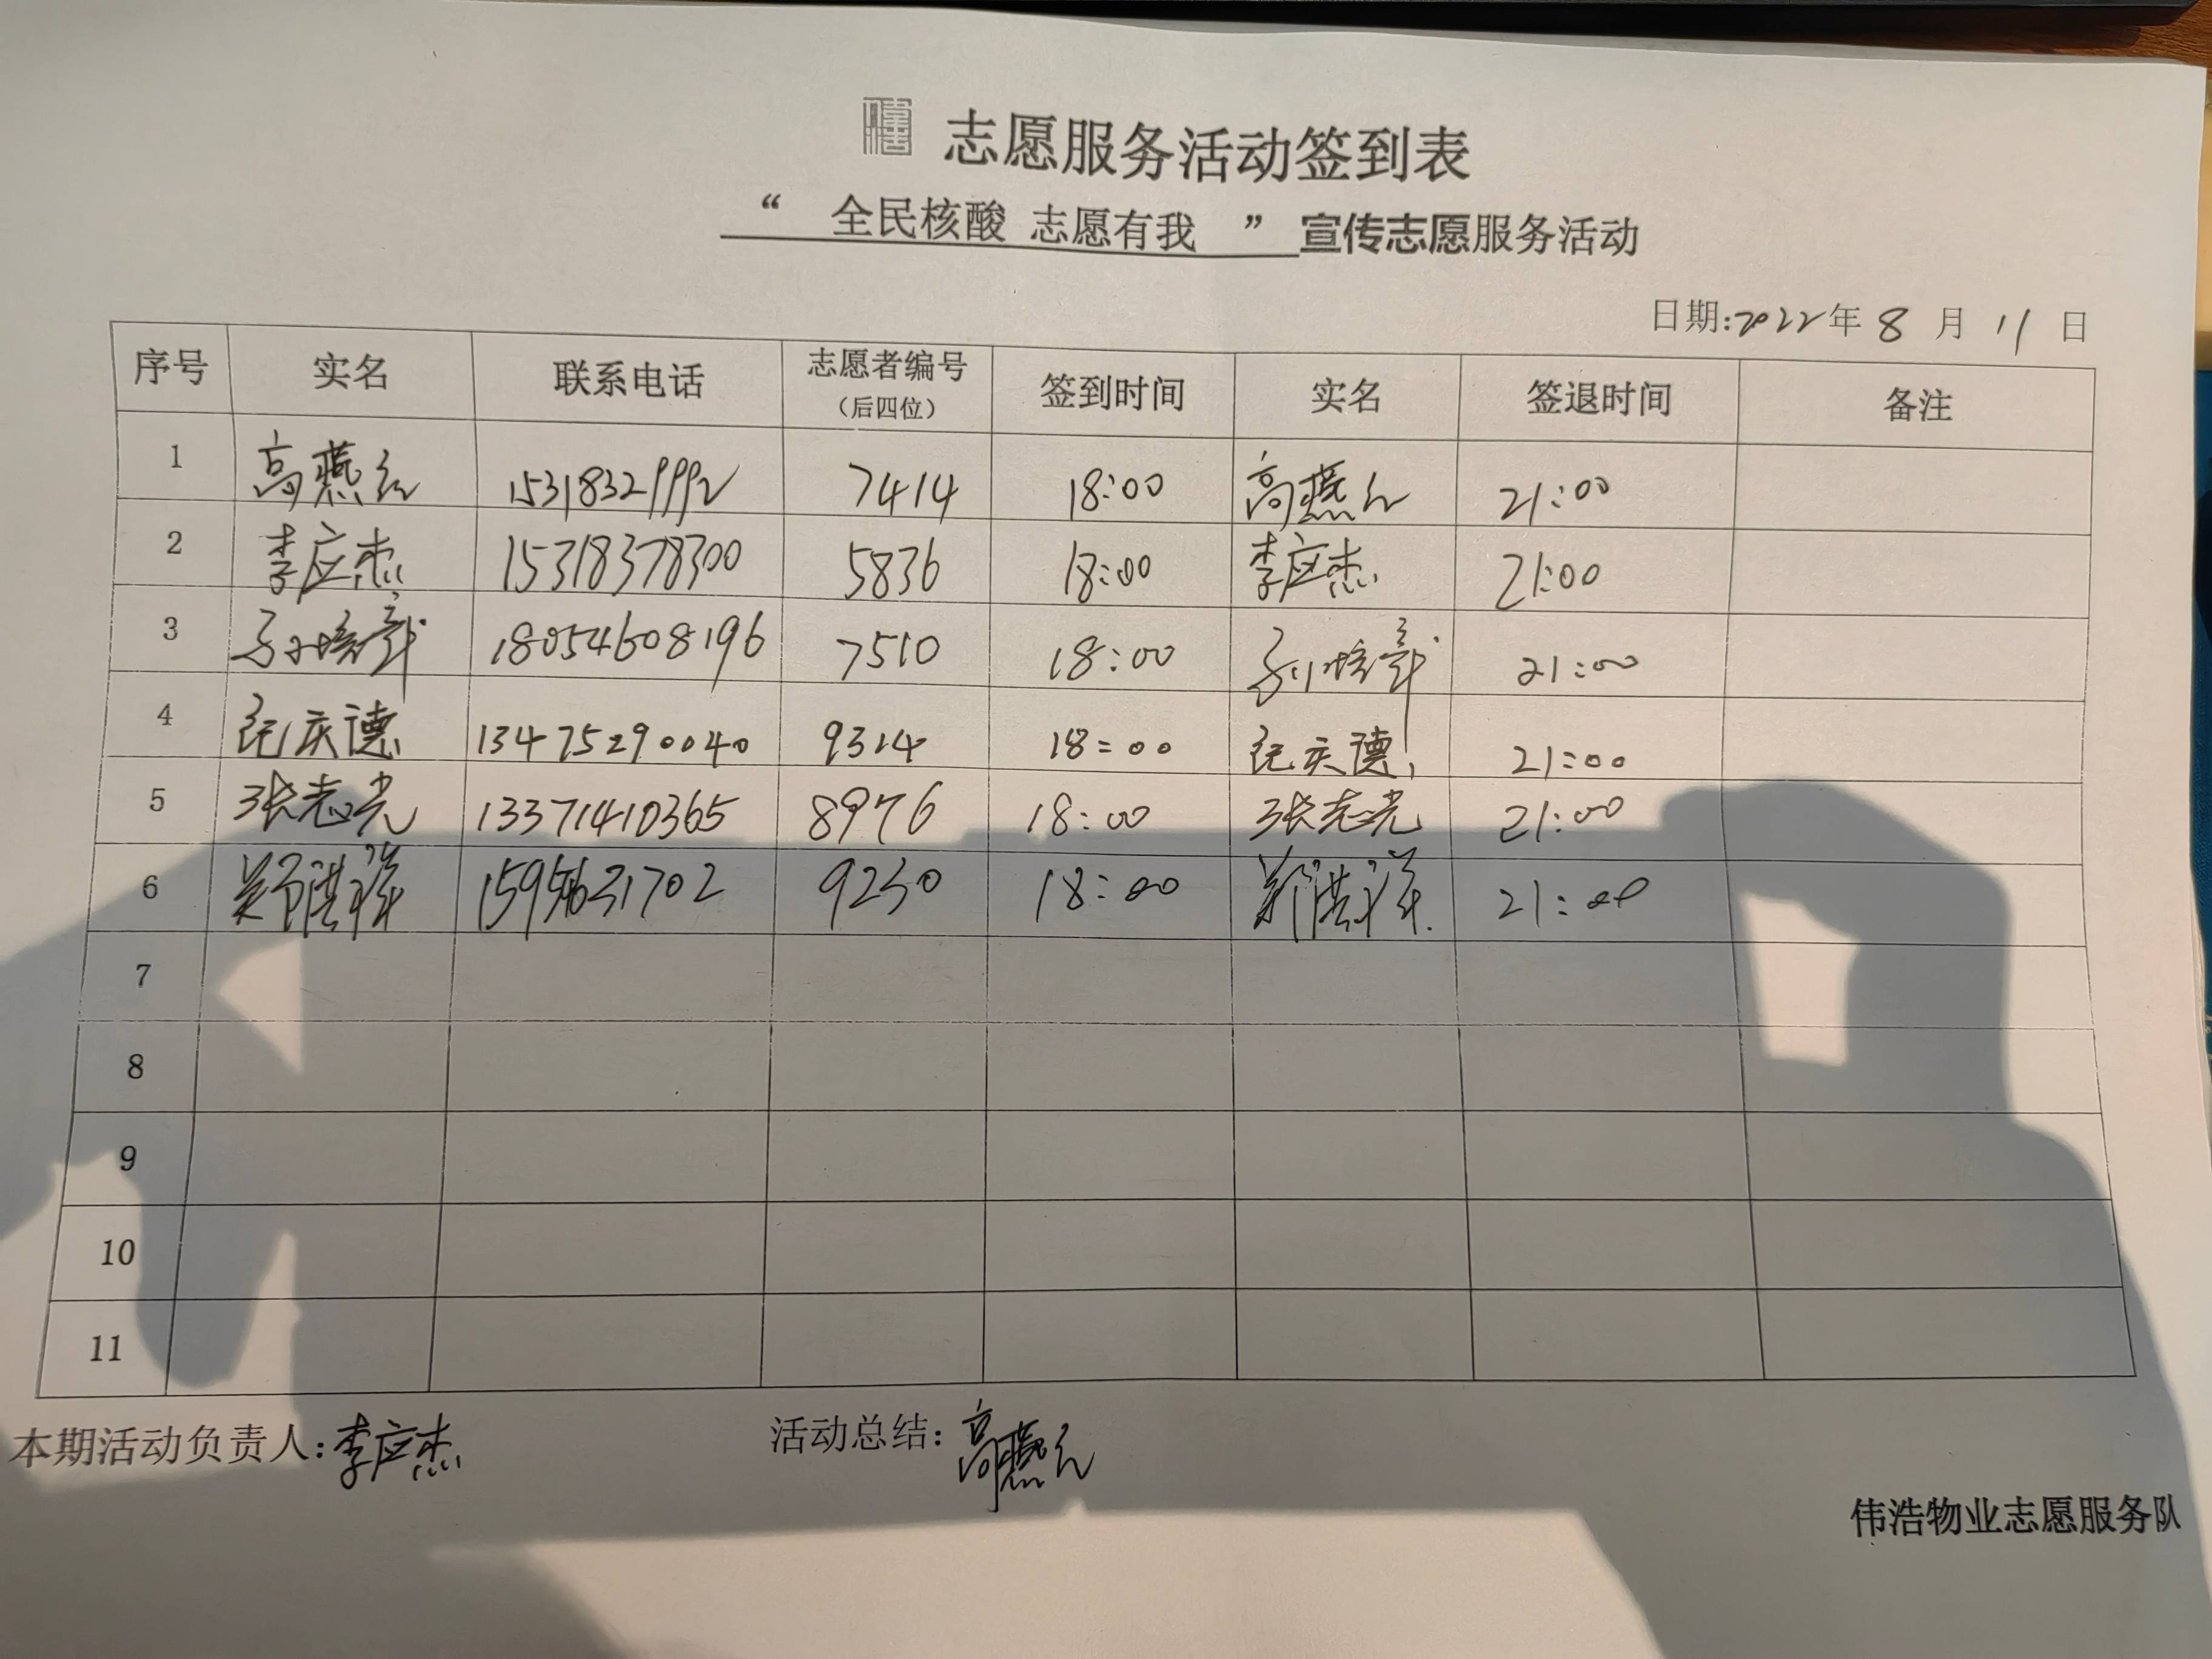 志愿服务活动签到表
“ 全民核酸 志愿有我 ” 宣传志愿服务活动
日期:2022年 8 月 11 日
序号 实名 联系电话 志愿者编号（后四位） 签到时间 实名 签退时间 备注
1 高燕红 15318329992 7414 18:00 高燕红 21:00
2 李应杰 15318378300 5836 18:00 李应杰 21:00
3 孙培彰 18054608196 7510 18:00 孙培彰 21:00
4 纪庆德 13475290040 9314 18:00 纪庆德 21:00
5 张志光 13371410365 8976 18:00 张志光 21:00
6 郑洪祥 9230 18:00 郑洪祥 21:00
7
8
9
10
11
本期活动负责人:李应杰 活动总结:高燕红
伟浩物业志愿服务队